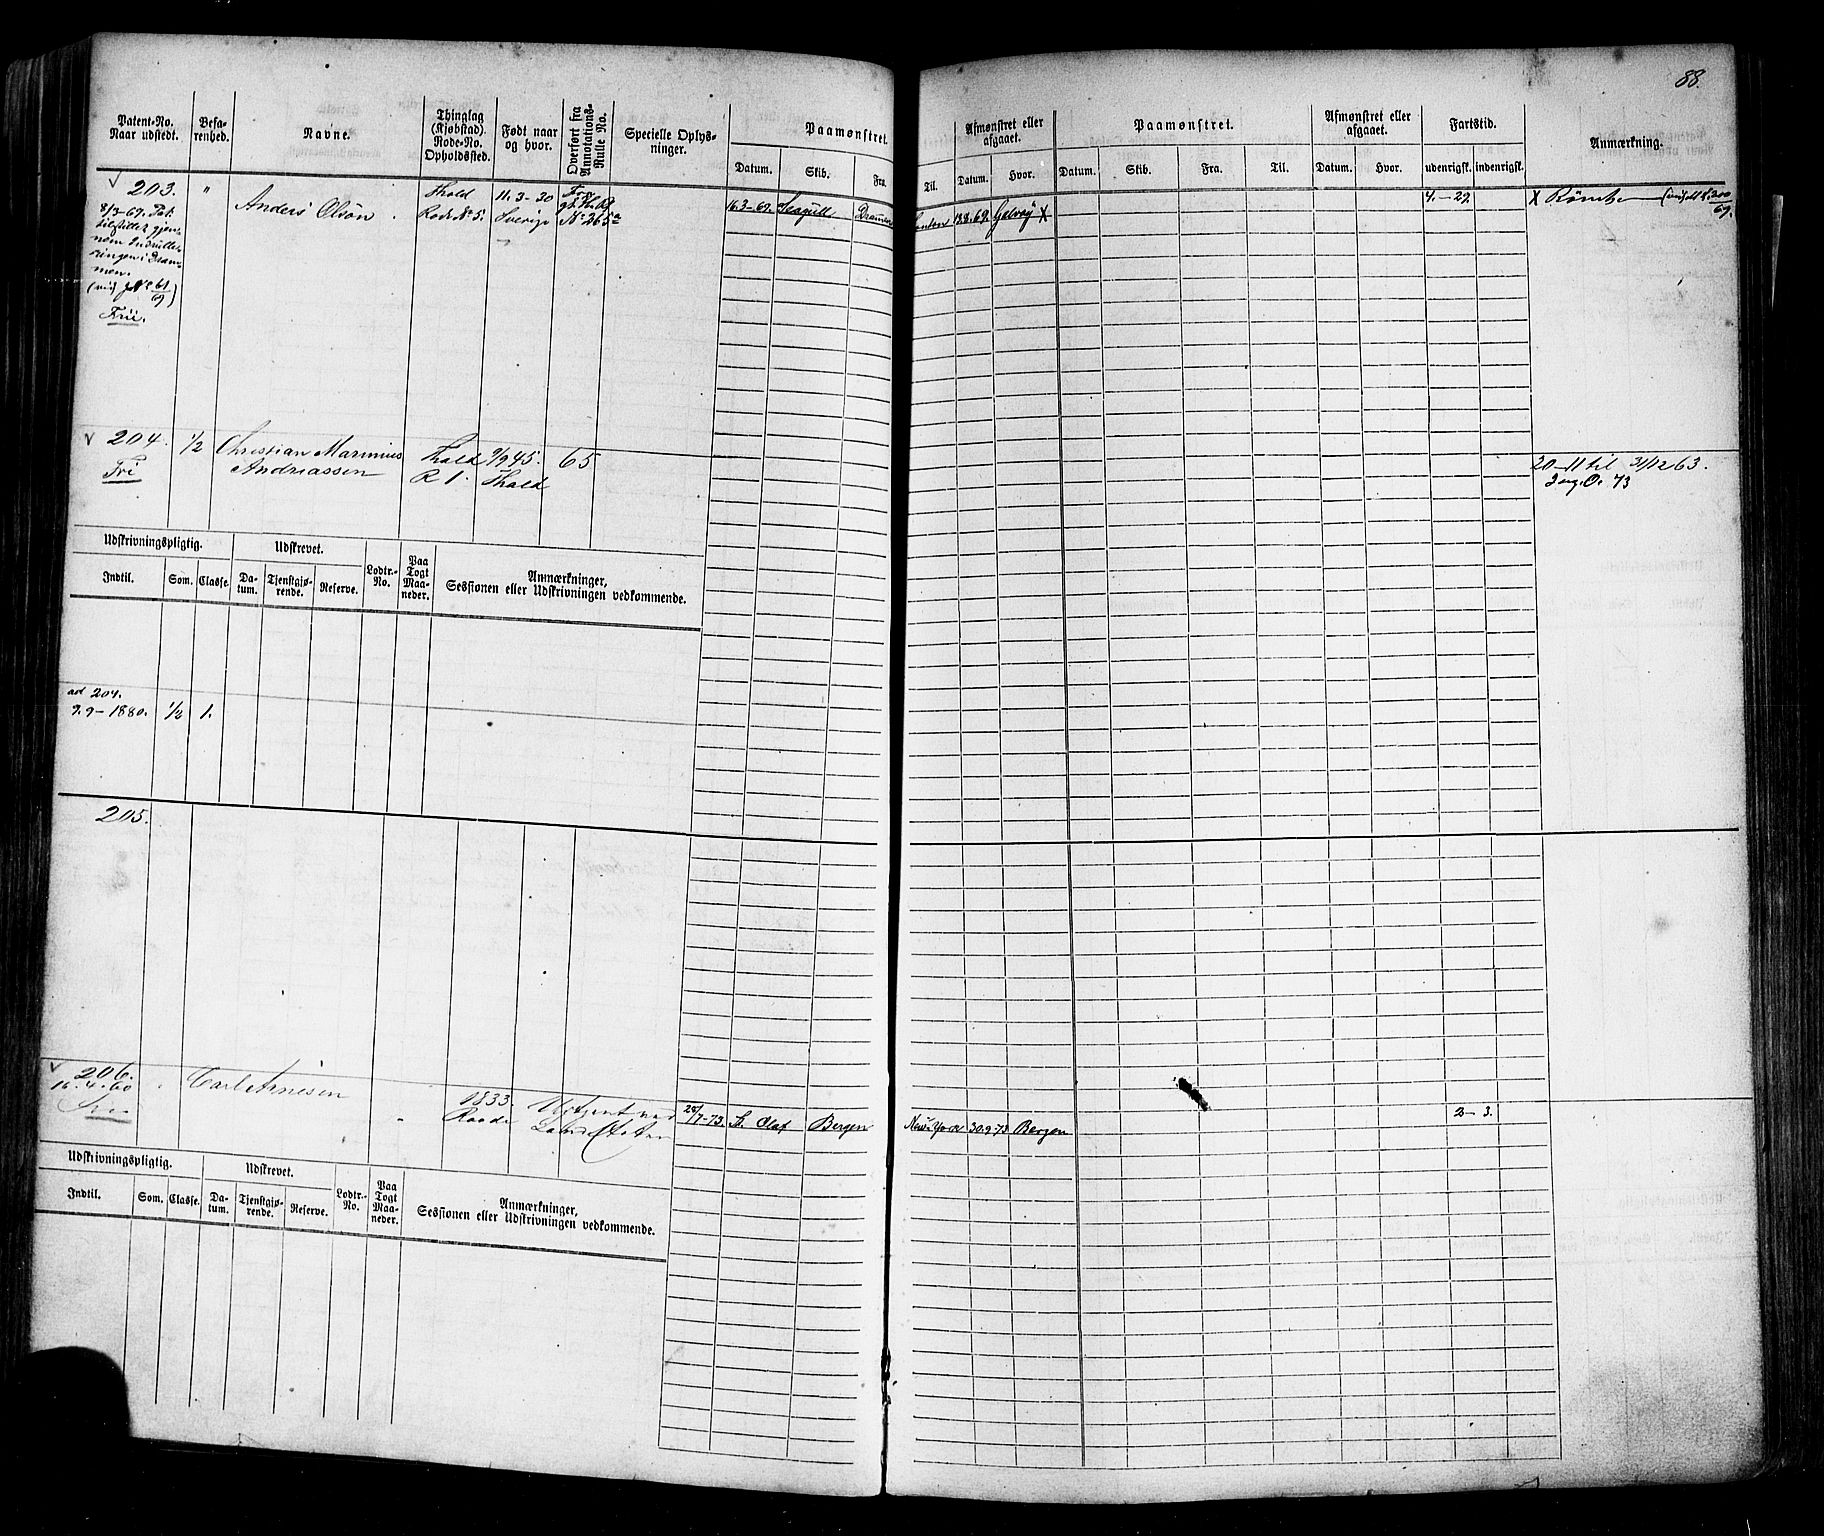 88.
Patent-No. Naar udstedt.
Befarenhed.
Navne.
Thinglag (Kjøbstad). Rode-No. Opholdssted.
Født naar og hvor.
Overført fra Annotations-Rulle No.
Specielle Oplysninger.
Paamønstret.
Datum. Skib. Fra. Til.
Afmønstret eller afgaaet.
Datum. Hvor.
Paamønstret.
Datum. Skib. Fra. Til.
Afmønstret eller afgaaet.
Datum. Hvor.
Fartstid.
udenrigsk. indenrigsk.
Anmærkning.
203. " Anders Olsøn. Fhald 11.3-30 Fra
Rode No 5. Sverige No 265a
16.3-69. Seagull Drammen London 13.8.69. Galway X 4.-29. X Rømte
8/3-69. Pat.
tilstillet gjen-
nem Indrulle-
ringen i Dram-
men.
61/69)
Frii.
204. 1/2 Christian Marinius Fhald 9/9 45. 65
Fri Andriassen R 1. Fhald
20-11 til 31/12 63.
O. 73
Udskrivningspligtig. Udskrevet. Lodtr.-No. Paa Togt Maaneder. Anmærkninger, Sessionen eller Udskrivningen vedkommende.
Indtil. Som. Classe. Datum. Tjenstgjørende. Reserve.
ad 204.
9.9-1880. 1/2 1.
205.
206. Carl Arnesen 1833.
16.4.60 Raade
28/7-73. St. Olaf Bergen New-York 30.9-73 Bergen 2- 3.
Udskrivningspligtig. Udskrevet. Lodtr.-No. Paa Togt Maaneder. Anmærkninger, Sessionen eller Udskrivningen vedkommende.
Indtil. Som. Classe. Datum. Tjenstgjørende. Reserve.